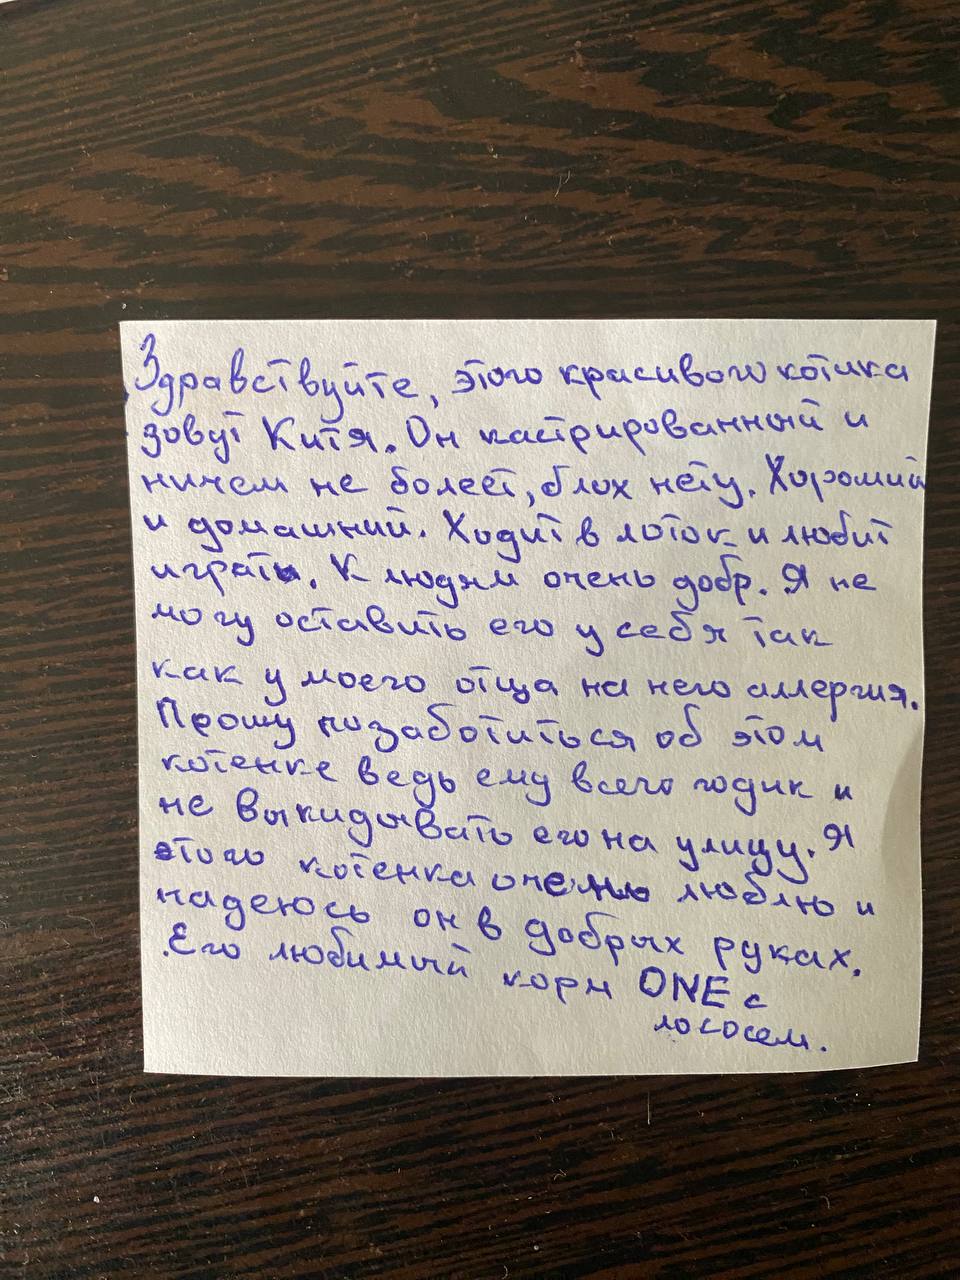 Здравствуйте, этого красивого котика
зовут Китя. Он кастрированный и
ничем не болеет, блох нету. Хороший
и домашний. Ходит в лоток и любит
играть. К людям очень добр. Я не
могу оставить его у себя так
как у моего отца на него аллергия.
Прошу позаботиться об этом
котенке ведь ему всего годик и
не выкидывать его на улицу. Я
этого котенка очень люблю и
надеюсь он в добрых руках.
Его любимый корм ONE с
лососем.